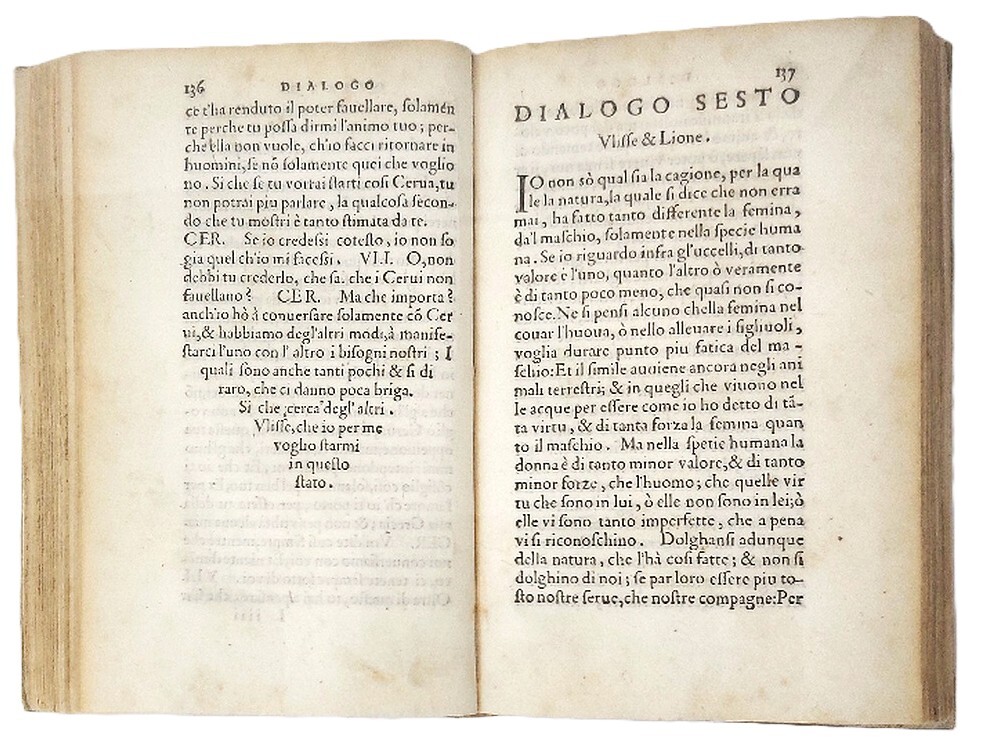 136 DIALOGO
ce t'ha renduto il poter fauellare, solamẽ
te perche tu possa dirmi l'animo tuo; per-
che ella non vuole, ch'io facci ritornare in
huomini, se nõ solamente quei che voglio
no. Si che se tu vorrai starti cosi Cerua, tu
non potrai piu parlare, la qualcosa secon-
do che tu mostri è tanto stimata da te.
CER. Se io credessi cotesto, io non so
gia quel ch'io mi facessi. VLI. O, non
debbi tu crederlo, che sa. che i Cerui non
fauellano? CER. Ma che importa?
anch'io hò à conuersare solamente cõ Cer
ui, & habbiamo degl'altri modi, à manife-
starci l'uno con l'altro i bisogni nostri; I
quali sono anche tanti pochi & si di
raro, che ci danno poca briga.
Si che cerca degl'altri.
Vlisse, che io per me
voglio starmi
in questo
stato.
137
DIALOGO SESTO
Vlisse & Lione.
IO non sò qual sia la cagione, per la qua
le la natura, la quale si dice che non erra
mai, ha fatto tanto differente la femina,
da'l maschio, solamente nella specie huma
na. Se io riguardo infra gl'uccelli, di tanto
valore è l'uno, quanto l'altro ò veramente
è di tanto poco meno, che quasi non si co-
nosce. Ne si pensi alcuno che la femina nel
couar l'huoua, ò nello alleuare i figliuoli,
voglia durare punto piu fatica del ma-
schio: Et il simile auuiene ancora negli ani
mali terrestri; & in quegli che viuono nel
le acque per essere come io ho detto di tã-
ta virtu, & di tanta forza la femina quan
to il maschio. Ma nella spetie humana la
donna è di tanto minor valore, & di tanto
minor forze, che l'huomo; che quelle vir
tu che sono in lui, ò elle non sono in lei; ò
elle vi sono tanto imperfette, che a pena
vi si riconoschino. Dolghansi adunque
della natura, che l'hà cosi fatte; & non si
dolghino di noi; se par loro essere piu to-
sto nostre serue, che nostre compagne: Per